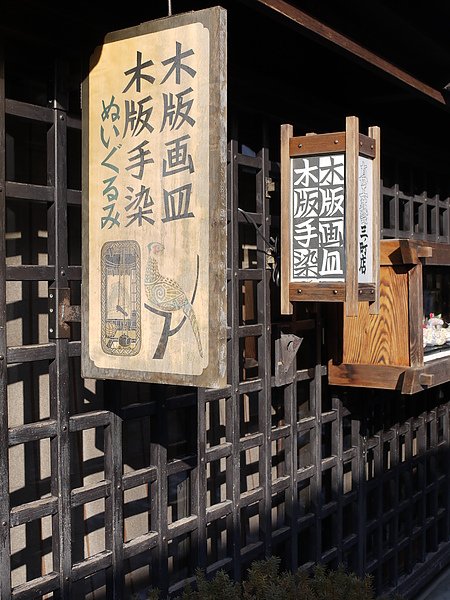 木版画皿
木版手染
ぬいぐるみ
木版画皿
木版手染